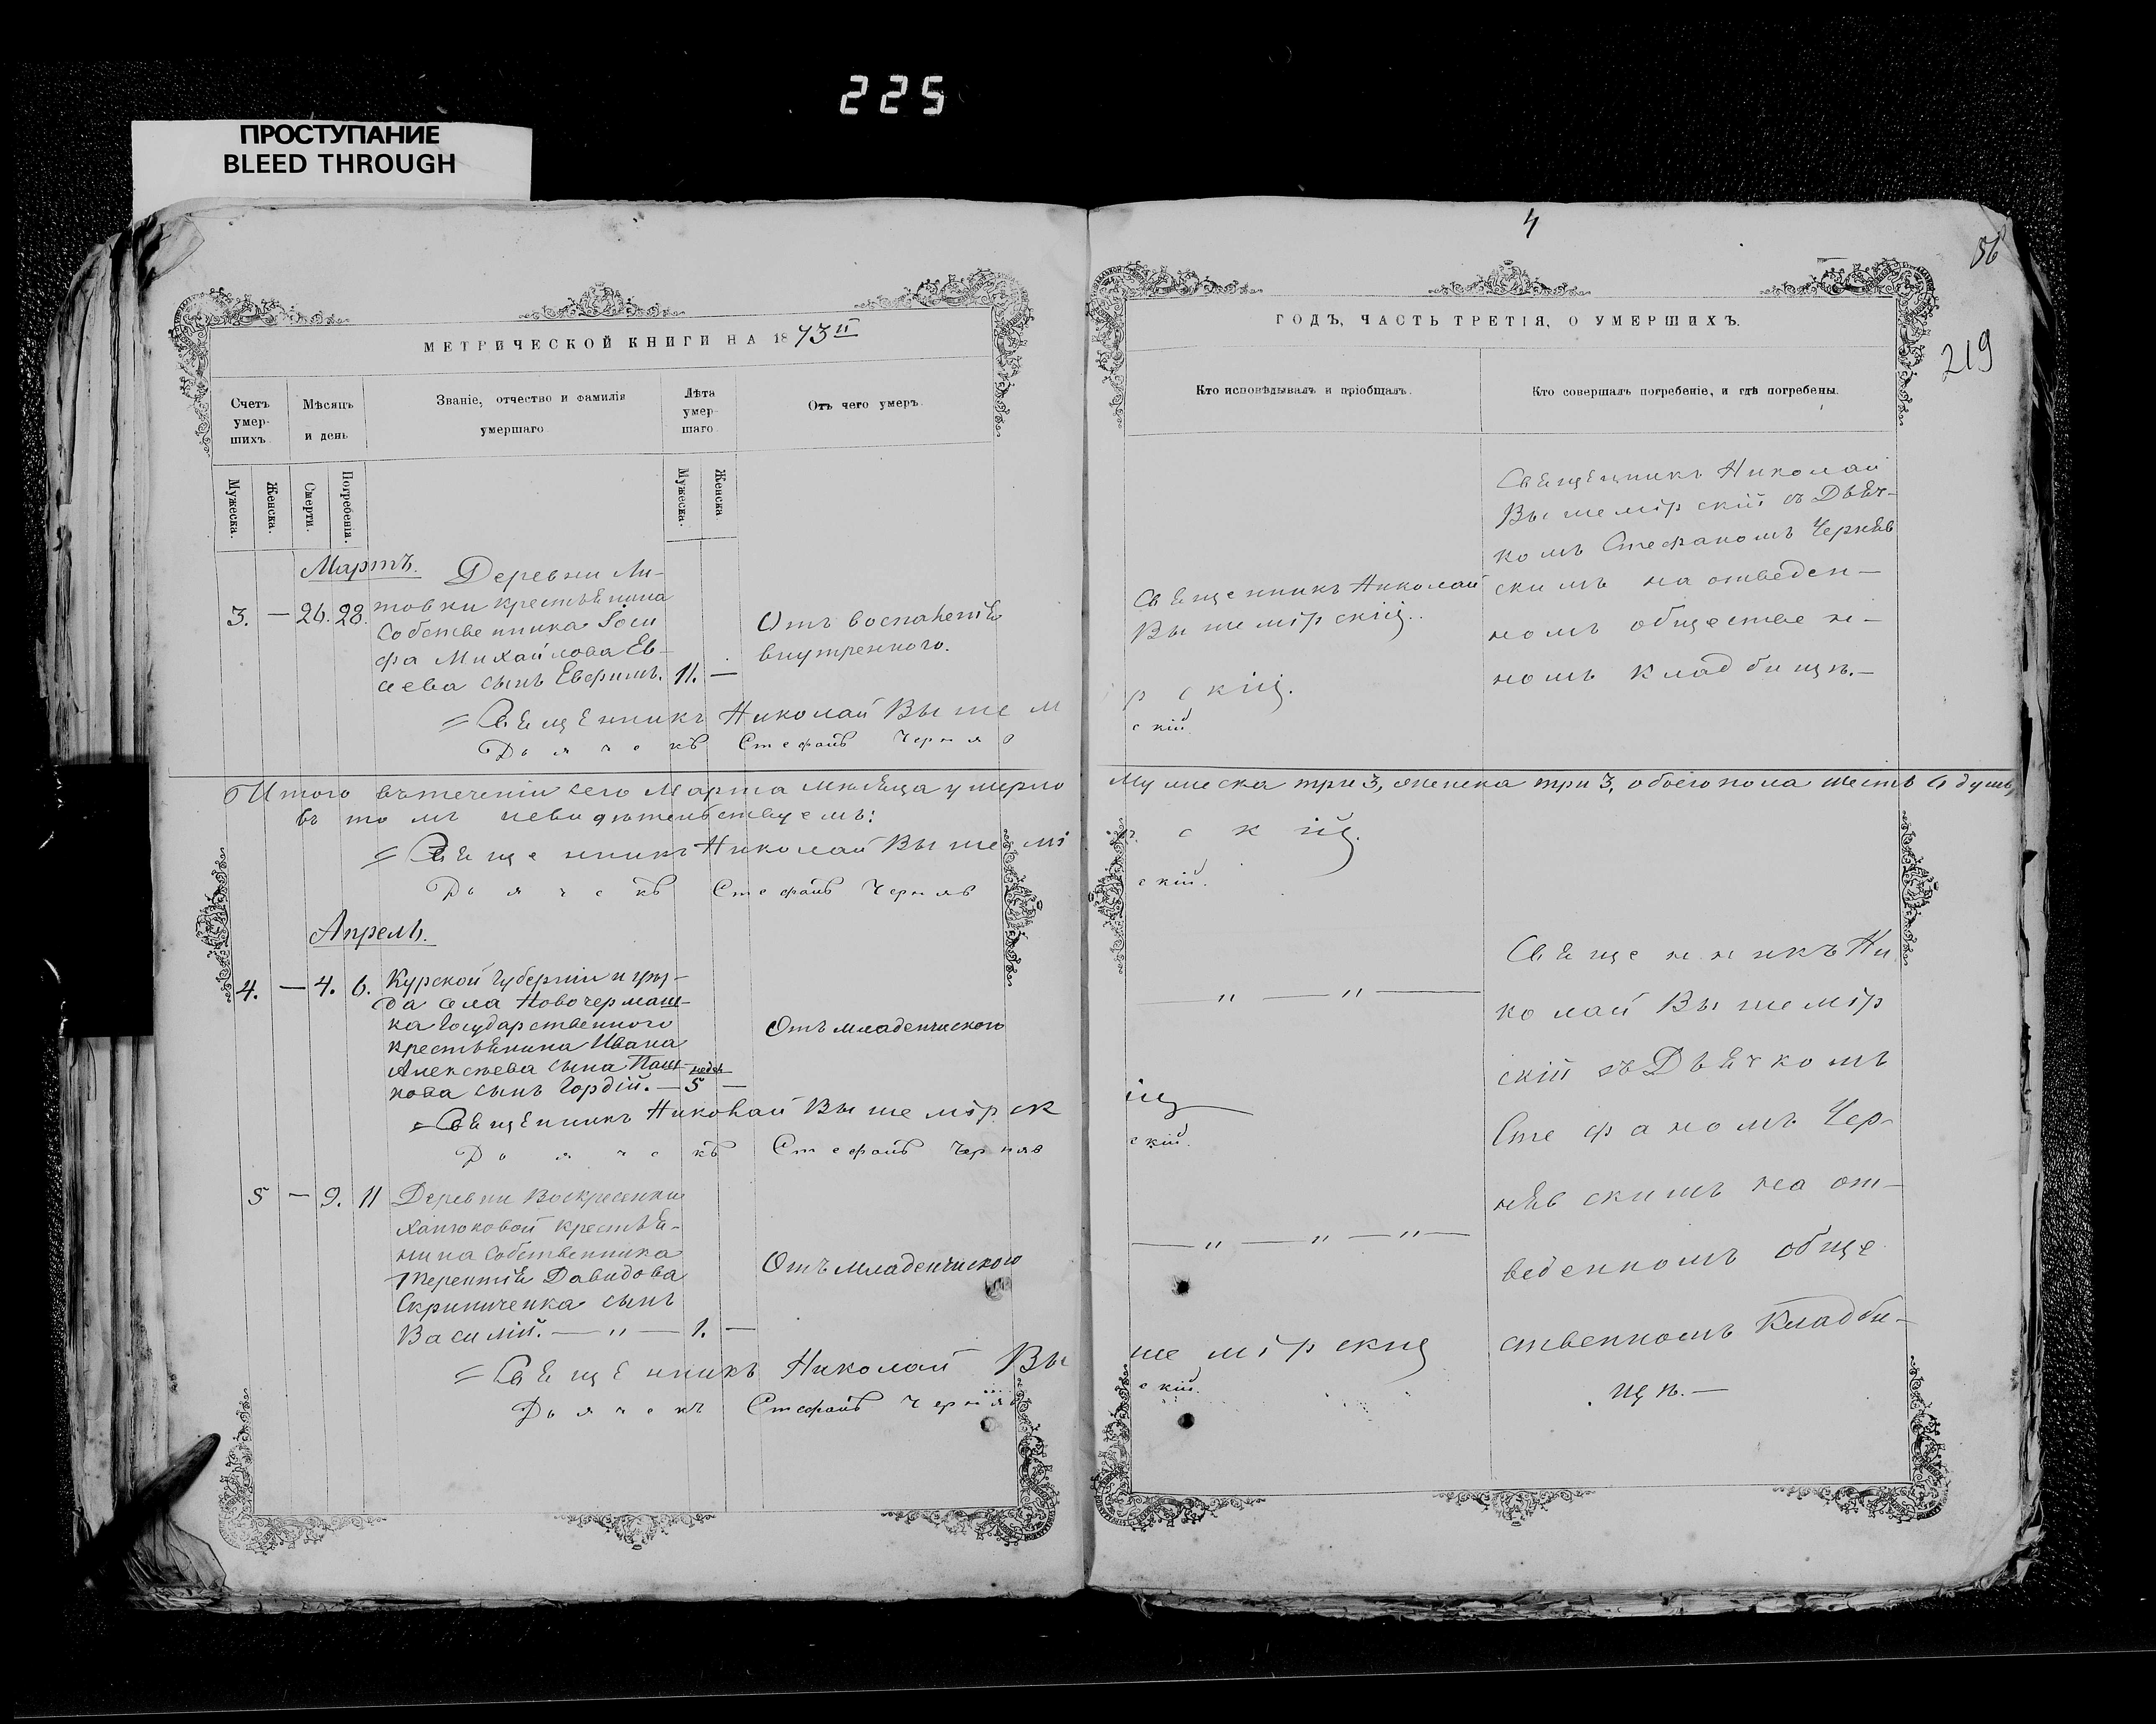 225
ПРОСТУПАНИЕ
BLEED THROUGH
МЕТРИЧЕСКОЙ КНИГИ НА 1873й
Счетъ умер-шихъ.
Мѣсяцъ и день
Званіе, отчество и фамилія умершаго
Лѣта умер-шаго.
Отъ чего умеръ.
Мужеска.
Женска.
Смерти.
Погребенія.
Мужеска.
Женска.
Мартъ.
Деревни Ли-
3. — 26. 28. товки крестьянина
Собственника Іоси
фа Михайлова Ев-
сеева сынъ Евфимъ. 11. —
Отъ воспаленія
внутренного.
= Священникъ Николай Вышем
Дьячекъ Стефанъ Черняв
Итого въ теченіи сего Марта мѣсяца умерло
въ томъ и свидѣтельствуемъ:
= Священникъ Николай Вышемі
Дьячекъ Стефанъ Черняв
Апрель.
4. — 4. 6. Курской Губерніи и уѣз-
да села Новочермаш-
ка Государственного
крестьянина Ивана
Алексѣева сына Паш-
кова сынъ Гордій. — 5 недѣ. —
Отъ младенческого
= Священникъ Николай Вышемірск
Дьячекъ Стефанъ Черняв
5 — 9. 11 Деревни Воскресенки
Ханюковой крестья-
нина Собственника
Терентія Давидова
Скрипиченка сынъ
Василій. — " — 1. —
Отъ младенческого
= Священникъ Николай Вы
Дьячекъ Стефанъ Черняв
4
56
219
ГОДЪ, ЧАСТЬ ТРЕТІЯ, О УМЕРШИХЪ.
Кто исповѣдывалъ и пріобщалъ.
Кто совершалъ погребеніе, и гдѣ погребены.
Священникъ Николай
Вышемірскій..
Священникъ Николай
Вышемірскій съ Дьяч-
комъ Стефаномъ Черняв
скимъ на отведен-
номъ обществен-
номъ кладбищѣ.—
рскій.
скій
Мужеска три 3, женска три 3, обоего пола шесть 6 душъ,
рскій.
скій.
— " — " —
ій
скій.
— " — " — " —
шемірскій
скій.
Священникъ Ни
колай Вышемір
скій съ Дьячкомъ
Стефаномъ Чер-
нявскимъ на от-
веденномъ обще
ственномъ Кладби-
щѣ.—